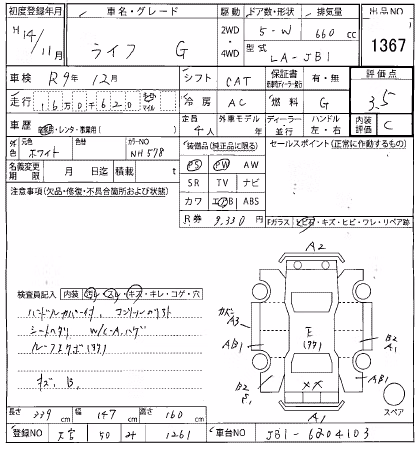 初度登録年月 車名・グレード 駆動 ドア数・形状 排気量 出品NO
H14/11月 ライフ G 2WD・4WD 5-W 660cc 1367
型式 LA-JB1
車検 R9年12月 シフト CAT 保証書 有・無 評価点
走行 16万0千620 冷房 AC 燃料 G 3.5
車歴 レンタ・事業用( ) 定員 4人 外車モデル 年 ディーラー・並行 ハンドル 左・右 内装評価 C
外色 元色 ホワイト 色替 カラーNO NH578
装備品(純正品に限る) セールスポイント(正常に作動するもの)
名義変更期限 月 日迄 積載 t
PS PW AW
SR TV ナビ
カワ エアB ABS
注意事項(欠品・修復・不具合箇所および状態)
R券 9,330円
Fガラス・キズ・ヒビ・ワレ・リペア跡
検査員記入 内装 ヨゴレ・スレ・キズ・キレ・コゲ・穴
シートヘタリ
キズ、B.
A2
A3
AB1
E
B2
A1
B2
AB1
××
A1
スペア
長さ 339cm 幅 147cm 高さ 160cm
登録NO 大宮 50 1261 車台NO JB1-6204103